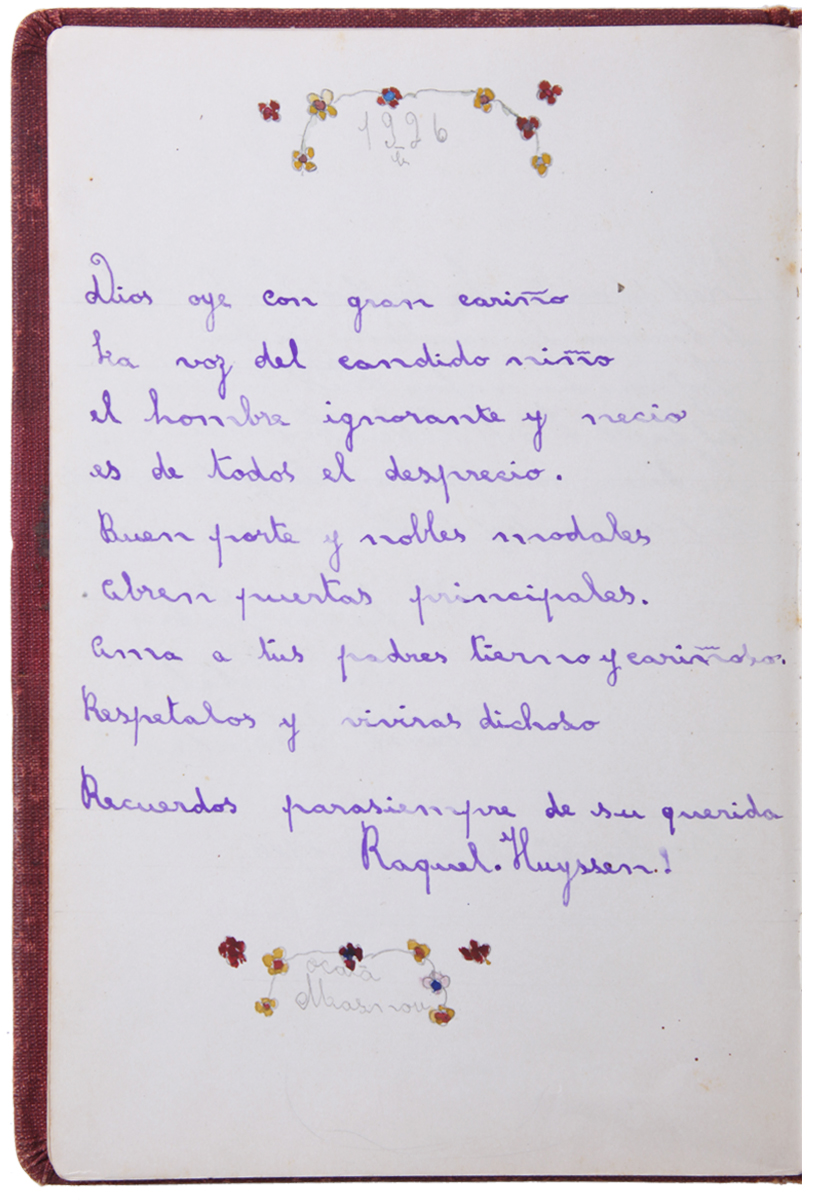 1926
Dios oye con gran cariño
La voz del candido niño
el hombre ignorante y necio
es de todos el desprecio.
Buen porte y nobles modales
abren puertas principales.
Ama a tus padres tierno y cariñoso.
Respetalos y viviras dichoso
Recuerdos parasiempre de su querida
Raquel. Huyssen.!
Masnou